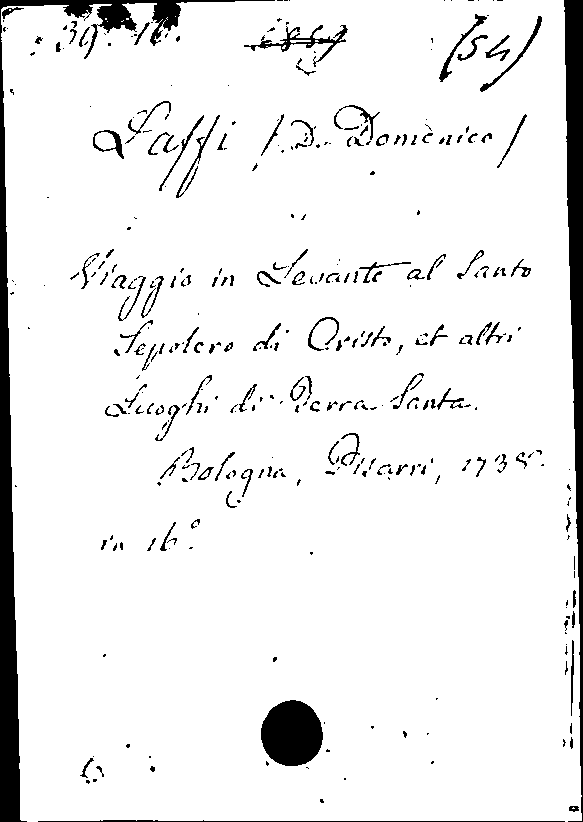 39. 16. (54)
Laffi /D. Domenico/
Viaggio in Levante al Santo
Sepolcro di Cristo, et altri
Luoghi di Terra Santa.
Bologna, Pisarri, 1738.
in 16.º